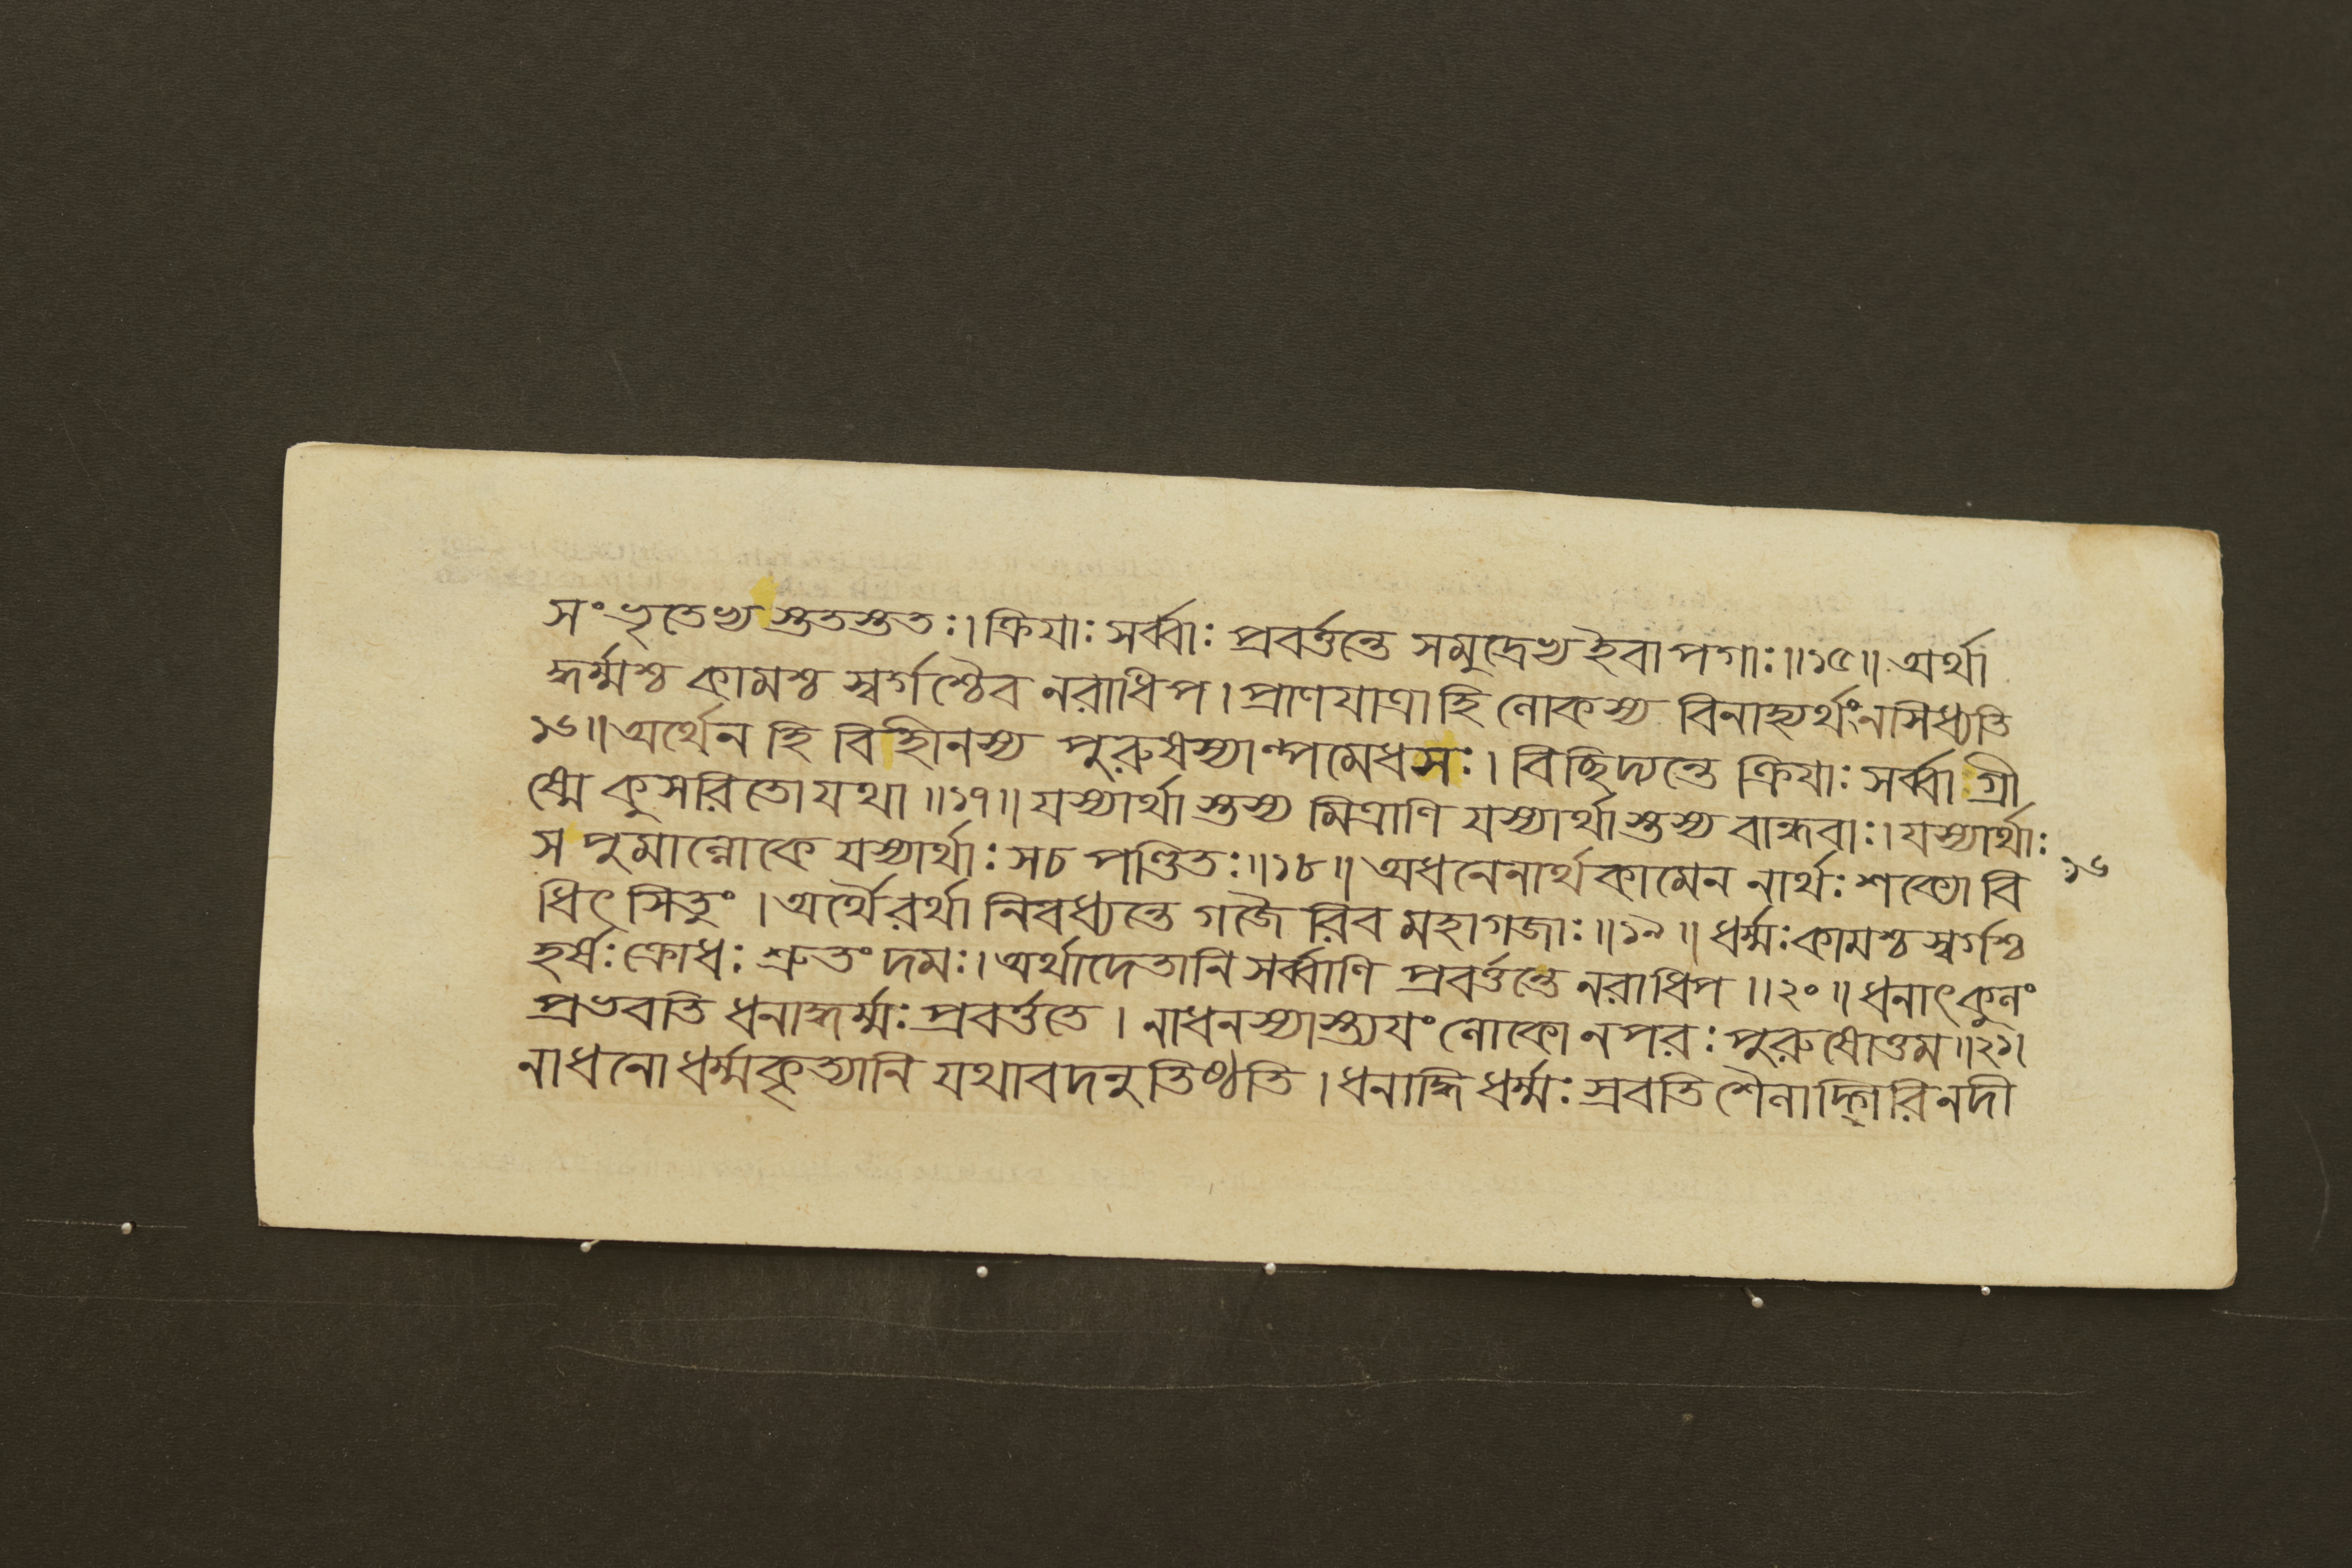 সংভৃতেভ্যস্ততস্ততঃ। ক্রিযাঃ সর্ব্বাঃ প্রবর্ত্তন্তে সমুদ্রেভ্যইবাপগাঃ॥১৫॥ অর্থা
দ্ধর্ম্মশ্চ কামশ্চ স্বর্গশ্চৈব নরাধিপ। প্রাণযাত্রাহি লোকস্য বিনাহ্যর্থং নসিধ্যতি
১৬॥ অর্থেন হি বিহীনস্য পুরুষস্যাল্পমেধসঃ। বিছিদ্যন্তে ক্রিযাঃ সর্ব্বা গ্রী
ষ্মে কুসরিতোযথা॥১৭॥ যস্যার্থাস্তস্য মিত্রাণি যস্যার্থাস্তস্য বান্ধবাঃ। যস্যার্থাঃ
স পুমাল্লোকে যস্যার্থাঃ সচ পণ্ডিতঃ॥১৮॥ অধনেনার্থকামেন নার্থঃ শক্যো বি
ধিৎসিতুং। অর্থৈরর্থা নিবধ্যন্তে গজৈরিব মহাগজাঃ॥১৯॥ ধর্ম্মঃ কামশ্চ স্বর্গশ্চ
হর্ষঃ ক্রোধঃ শ্রুতং দমঃ। অর্থাদেতানি সর্ব্বাণি প্রবর্ত্তন্তে নরাধিপ॥২০॥ ধনাৎকুলং
প্রভবতি ধনাদ্ধর্ম্মঃ প্রবর্ত্ততে। নাধনস্যাস্ত্যযং লোকো নপরঃ পুরুষোত্তম॥২১।
নাধনো ধর্ম্মকৃত্যানি যথাবদনুতিষ্ঠতি। ধনাদ্ধি ধর্ম্মঃ স্রবতি শৈলাদ্গিরিনদী
১৬